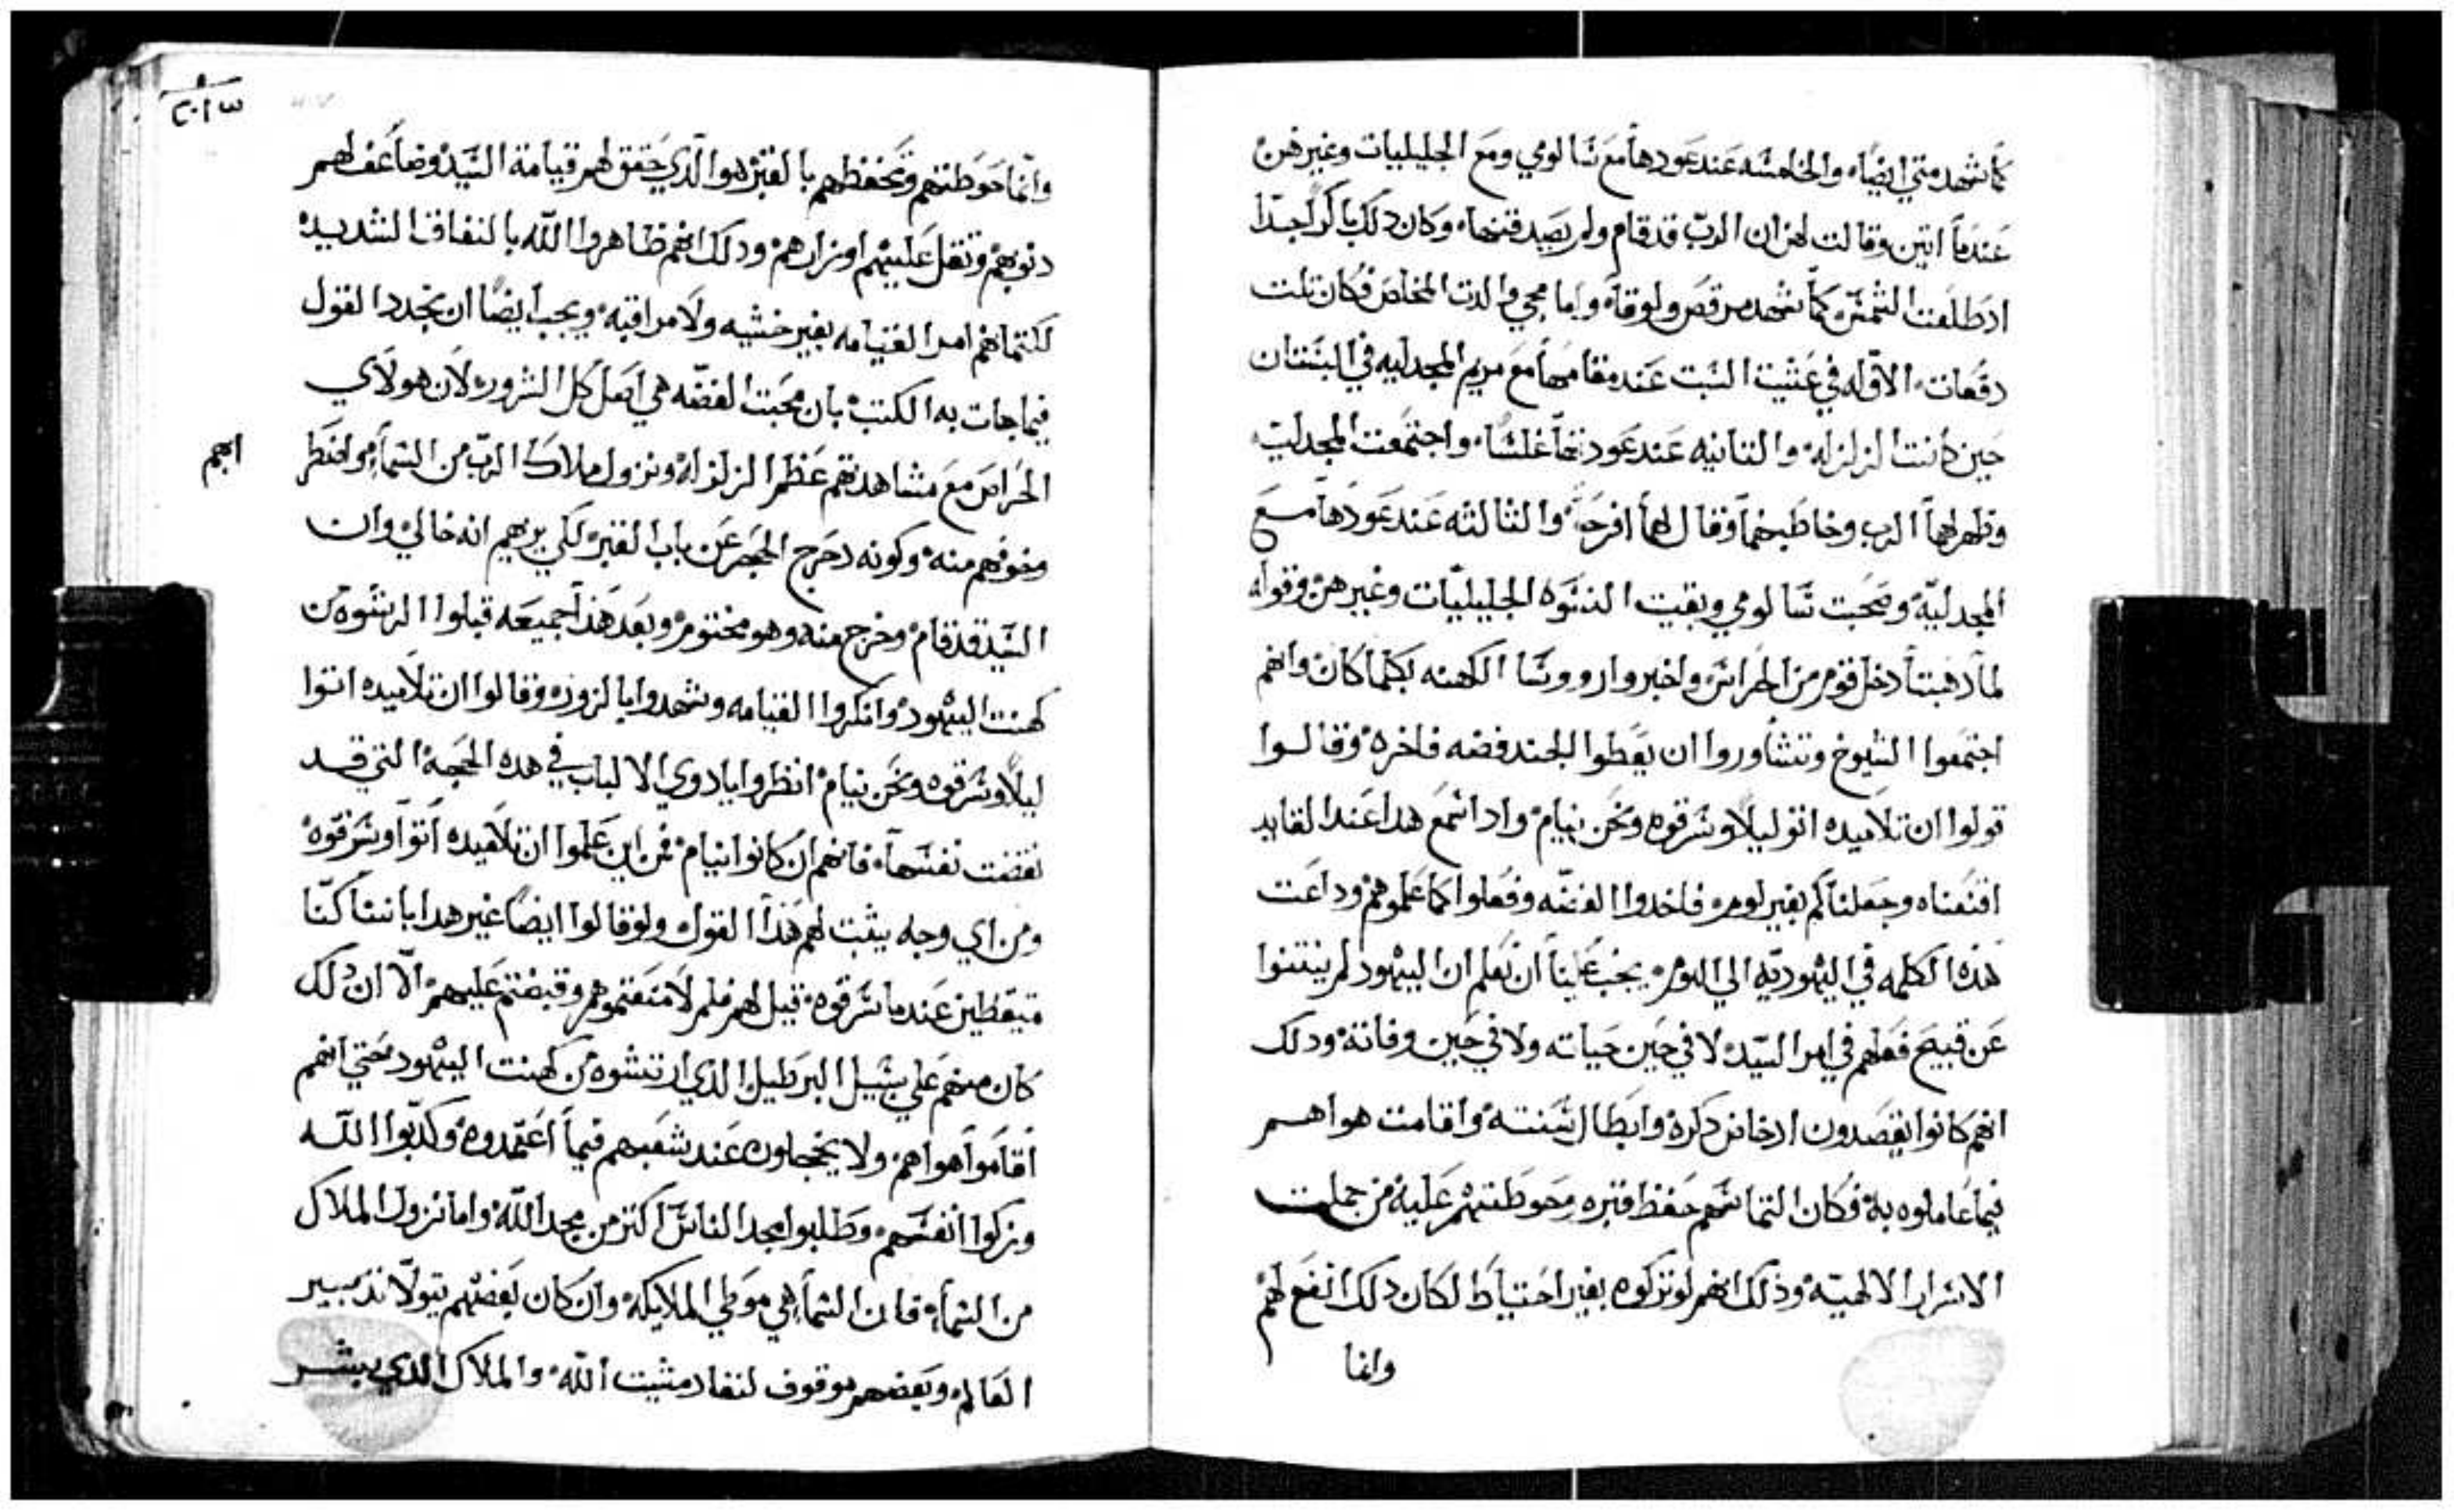 كما شهد متي ايضًا، والخامسه عند عودها مع سالومي ومع الجليليات وغيرهن
عندما اتين وقالت لهن ان الرب قد قام ولم يصدقنها، وكان ذلك باكرًا جدًا
اذ طلعت الشمس كما شهد مرقص ولوقا، واما مجي والدت المخلص فكان تلت
دفعات، الاوله في عشيت السبت عند مقامها مع مريم المجدليه في البستان
حين كانت الزلزله، والتانيه عند عودتها غلسًا، واجتمعت المجدليه
وظهر لهما الرب وخاطبهما وقال لهما افرحو، والثالثه عند عودها مع
المجدليه وصحبت سالومي وبقيت النسوه الجليليّات وغيرهن، وقوله
لما ذهبتا دخل قوم من الحراس واخبروا روسا الكهنه بكلما كان، وانهم
اجتمعوا الشيوخ وتشاوروا ان يعطوا الجند فضه فاخره، وقالوا
قولوا ان تلاميده اتو ليلًا وسرقوه ونحن نيام، واذا سمع هدا عند القايد
اقنعناه وجعلناكم بغير لوم، فاخدوا الفضّه وفعلوا كما علموهم، وداعت
هذه الكلمه في اليهوديّه الي اليوم، يجب علينا ان نعلم ان اليهود لم ينتنوا
عن قبيح فعلهم في امر السيّد، لا في حين حياته ولا في حين وفاته، ودلك
انهم كانوا يقصدون ادحاض ذكره وابطال سنته، واقامت هواهم
فيما عاملوه به، فكان التماسهم حفظ قبره وحوطتهم عليه من جملت
الاسرار الالهيّه، وذلك انهم لو تركوه بغير احتياط لكان دلك انفع لهم
وانما
٢٠١٣
وانّما حوطتهم وتحفظهم بالقبر هوا الّذي حقق لهم قيامة السيّد، وضاعف لهم
دنوبهم وتقل عليهم اوزارهم، ودلك انهم ظاهروا اللّه بالنفاق الشديد،
لكتمانهم امر القيامه بغير خشيه ولا مراقبه، ويجب ايضًا ان نجدد القول
فيما جات به الكتب، بان محبّت الفضّه هي اصل كل الشرور، لان هولاي
الحراس مع مشاهدتهم عظم الزلزله ونزول ملاك الرب من السما،
ابهم
وخوفهم منه، وكونه دحرج الحجر عن باب القبر لكي يريهم انه خالي، وان
السيّد قد قام، وخرج منه وهو مختوم، وبعد هذا جميعه قبلوا الرشوه من
كهنت اليهود، وانكروا القيامه وشهدوا بالزور، وقالوا ان تلاميده اتوا
ليلًا وسرقوه ونحن نيام، انظروا يا دوي الالباب في هده الحجه التي قد
نقضت نفسها، فانهم ان كانوا نيام، فمن اين علموا ان تلاميده اتوا وسرقوه،
ومن اي وجه يثبت لهم هذا القول، ولو قالوا ايضًا غير هدا باننا كنّا
متيقظين عندما سرقوه، قيل لهم فلم لا منعتموهم وقبضتم عليهم، الّا ان دلك
كان منهم علي سبيل البرطيل الدي ارتشوه من كهنت اليهود، حتي انهم
اقاموا هواهم، ولا يخجلون عند شعبهم فيما اعتمدوه، وكدّبوا اللّه
وزكوا انفسهم، وطلبوا مجد الناس اكتر من مجد اللّه، واما نزول الملاك
من السما، فان السما هي موطي الملايكه، وان كان بعضهم يتولّا تدبير
العالم، وبعضهم وقوف لنفاد مشيت اللّه، والملاك الدي يبشر